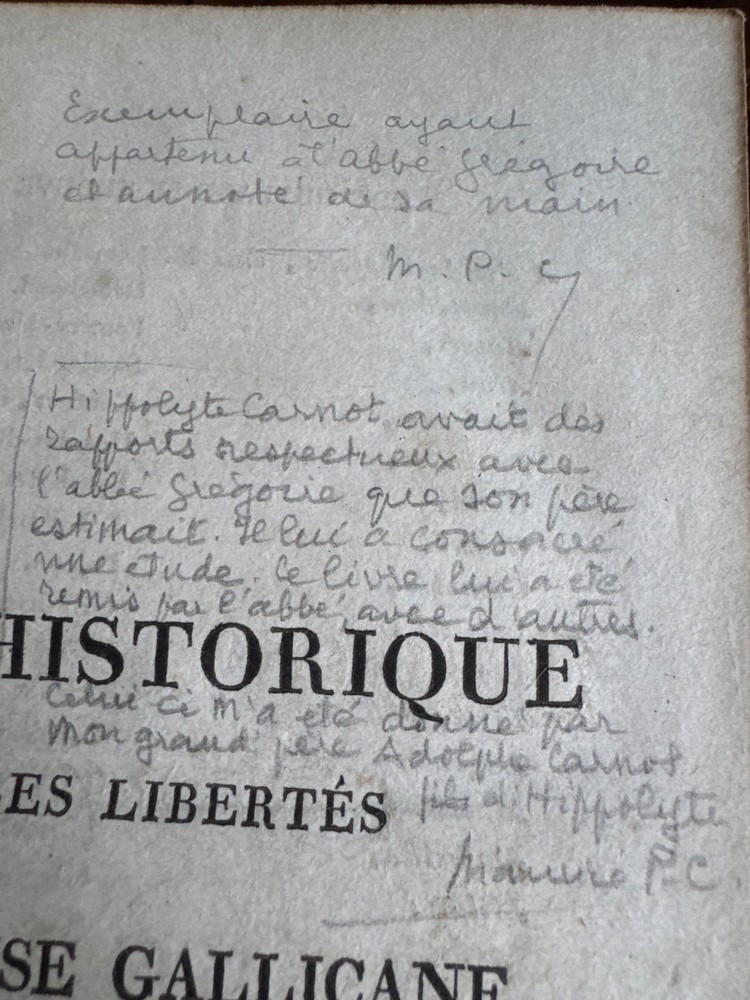 Exemplaire ayant
appartenu à l'abbé Grégoire
et annoté de sa main
M. P. C
Hippolyte Carnot avait des
rapports respectueux avec
l'abbé Grégoire que son père
estimait. Il lui a consacré
une étude. Ce livre lui a été
remis par l'abbé, avec d'autres.
HISTORIQUE
Celui ci m'a été donné par
mon grand père Adolphe Carnot
LES LIBERTÉS
fils d'Hippolyte
P-C
SE GALLICANE